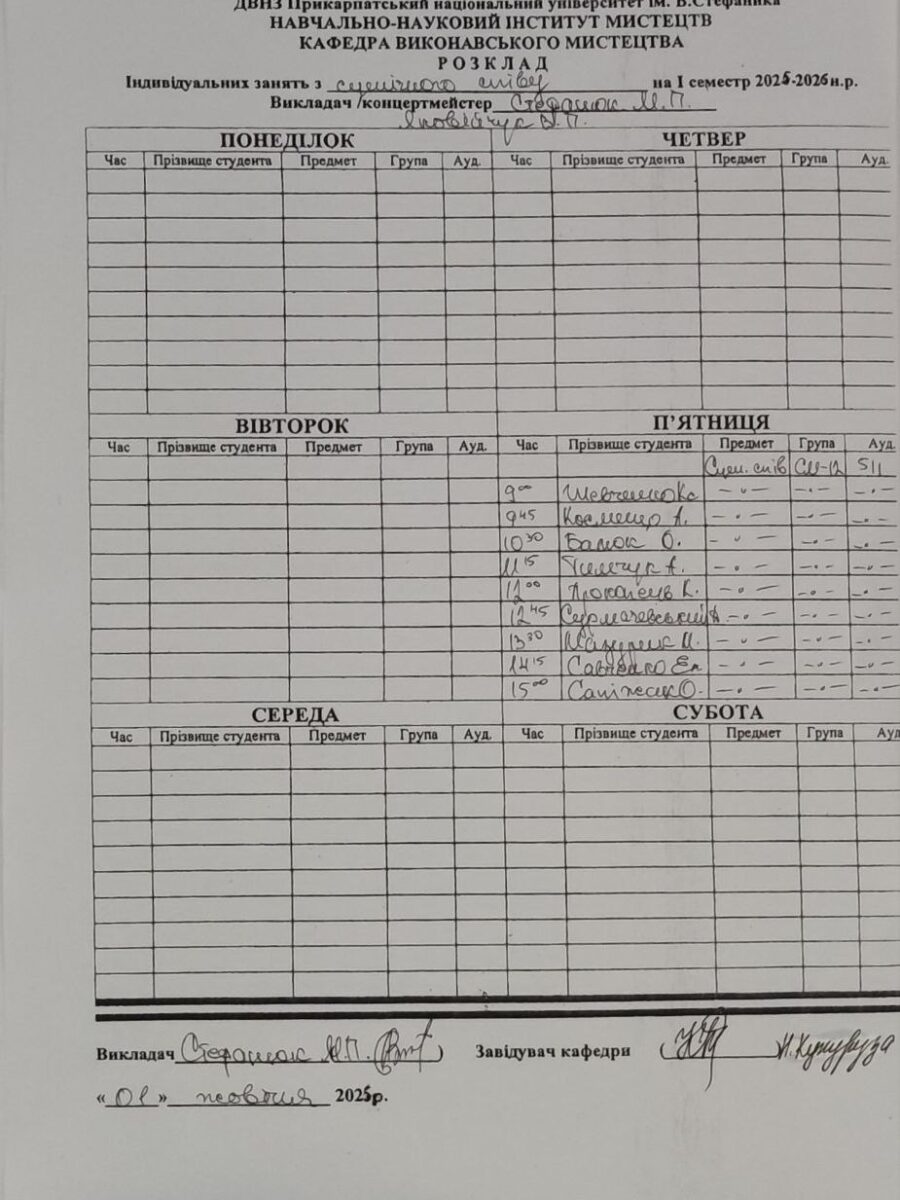 ДВНЗ Прикарпатський національний університет ім. В.Стефаника
НАВЧАЛЬНО-НАУКОВИЙ ІНСТИТУТ МИСТЕЦТВ
КАФЕДРА ВИКОНАВСЬКОГО МИСТЕЦТВА
Р О З К Л А Д
Індивідуальних занять з сценічного співу на І семестр 2025-2026н.р.
Викладач /концертмейстер Стефанюк М.П.
ПОНЕДІЛОК
Час Прізвище студента Предмет Група Ауд.
ЧЕТВЕР
Час Прізвище студента Предмет Група Ауд.
ВІВТОРОК
Час Прізвище студента Предмет Група Ауд.
П’ЯТНИЦЯ
Час Прізвище студента Предмет Група Ауд.
Сцен. спів СМ-12 511
9 00 Шевченко К. – " – – " – – " –
9 45 Космещр А. – " – – " – – " –
10 30 Балюк О. – " – – " – – " –
11 15 Тимчук А. – " – – " – – " –
12 00 Прокопів К. – " – – " – – " –
12 45 Сурмачевський – " – – " – – " –
13 30 Мазурик – " – – " – – " –
14 15 Савченко – " – – " – – " –
15 00 Сапіжак О. – " – – " – – " –
СЕРЕДА
Час Прізвище студента Предмет Група Ауд.
СУБОТА
Час Прізвище студента Предмет Група Ауд
Викладач Стефанюк М.П.
Завідувач кафедри
«01» жовтня 2025р.